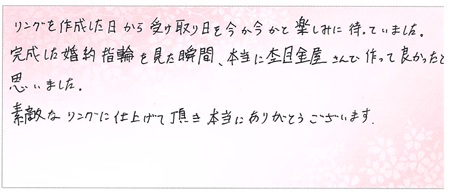 リングを作成した日から受け取り日を今か今かと楽しみに待っていました。
完成した婚約指輪を見た瞬間、本当に杢目金屋さんで作って良かったと
思いました。
素敵なリングに仕上げて頂き本当にありがとうございます.